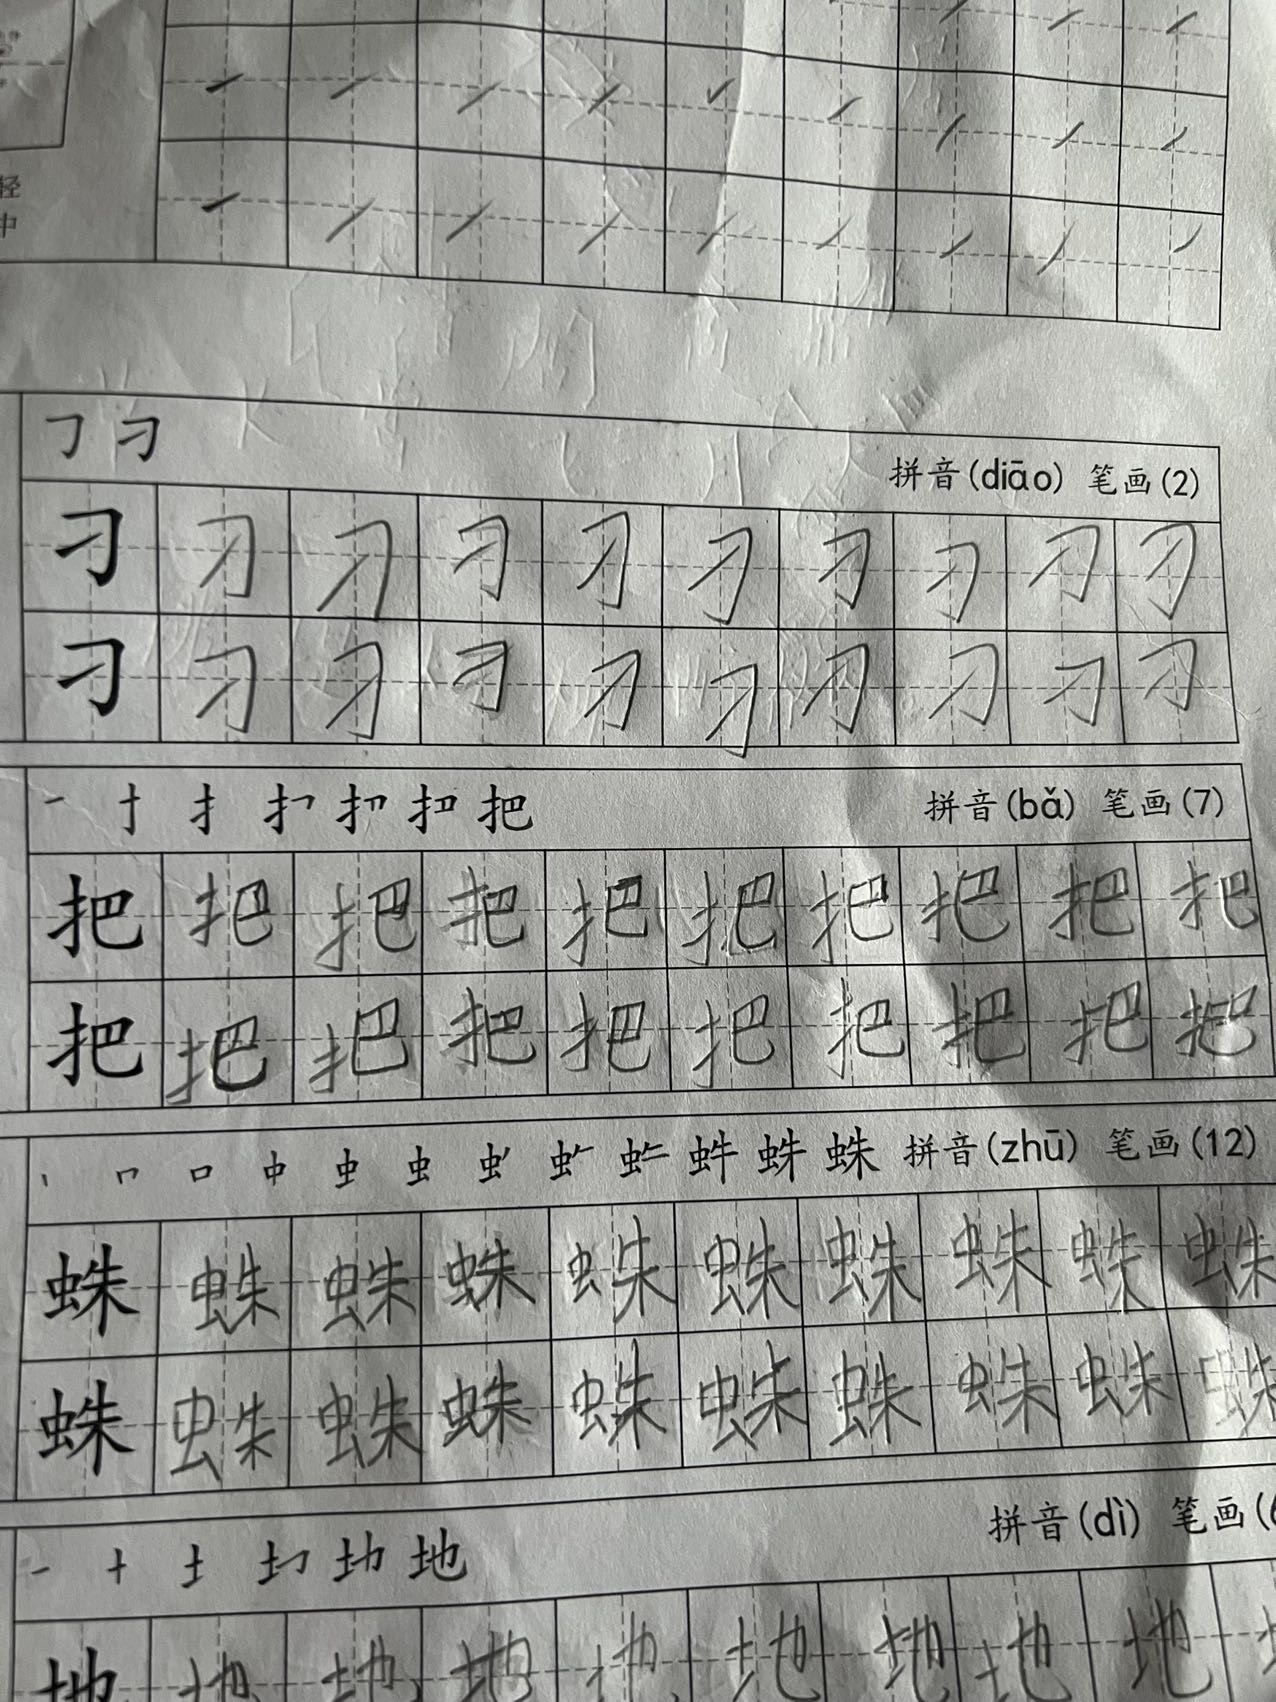 轻
中
刁 拼音(diāo) 笔画(2)
刁 刁 刁 刁 刁 刁 刁 刁 刁 刁
刁 刁 刁 刁 刁 刁 刁 刁 刁 刁
扌 把 拼音(bǎ) 笔画(7)
把 把 把 把 把 把 把 把 把 把
把 把 把 把 把 把 把 把 把 把
口 中 虫 蛛 拼音(zhū) 笔画(12)
蛛 蛛 蛛 蛛 蛛 蛛 蛛 蛛 蛛 蛛
蛛 蛛 蛛 蛛 蛛 蛛 蛛 蛛 蛛 蛛
一 十 土 地 拼音(dì) 笔画(
地 地 地 地 地 地 地 地 地